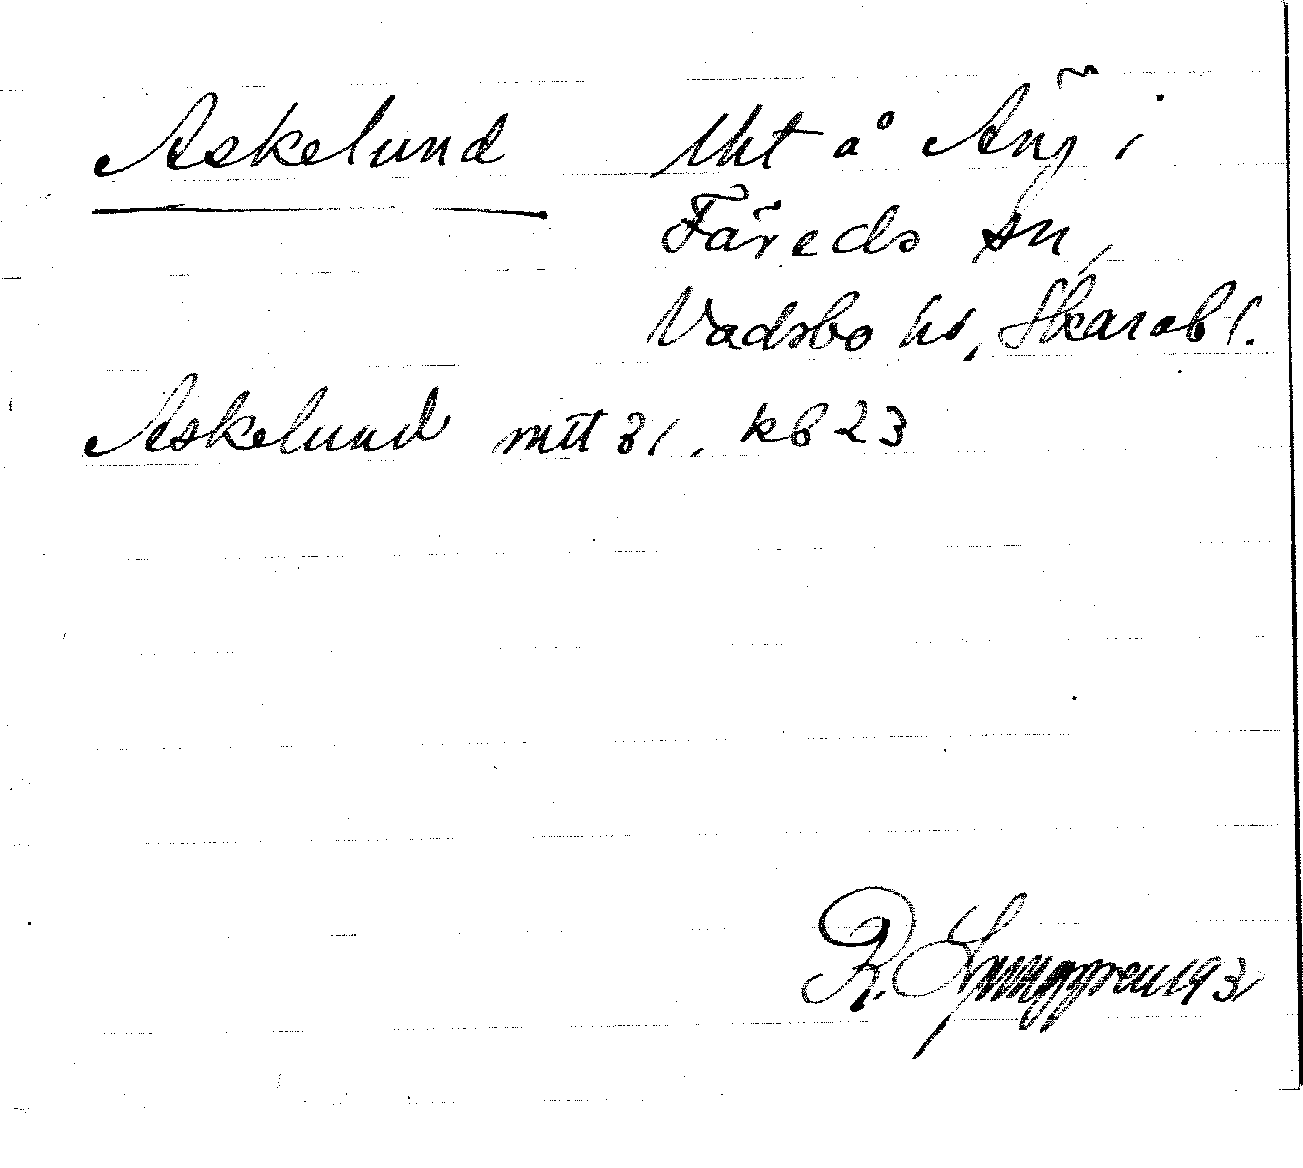 Askelund Uht å Äng i
Färeds sn,
Vadsbo hd, Skarabl.
Askelund mtt 31, kb 23
R. Ljunggren 1931